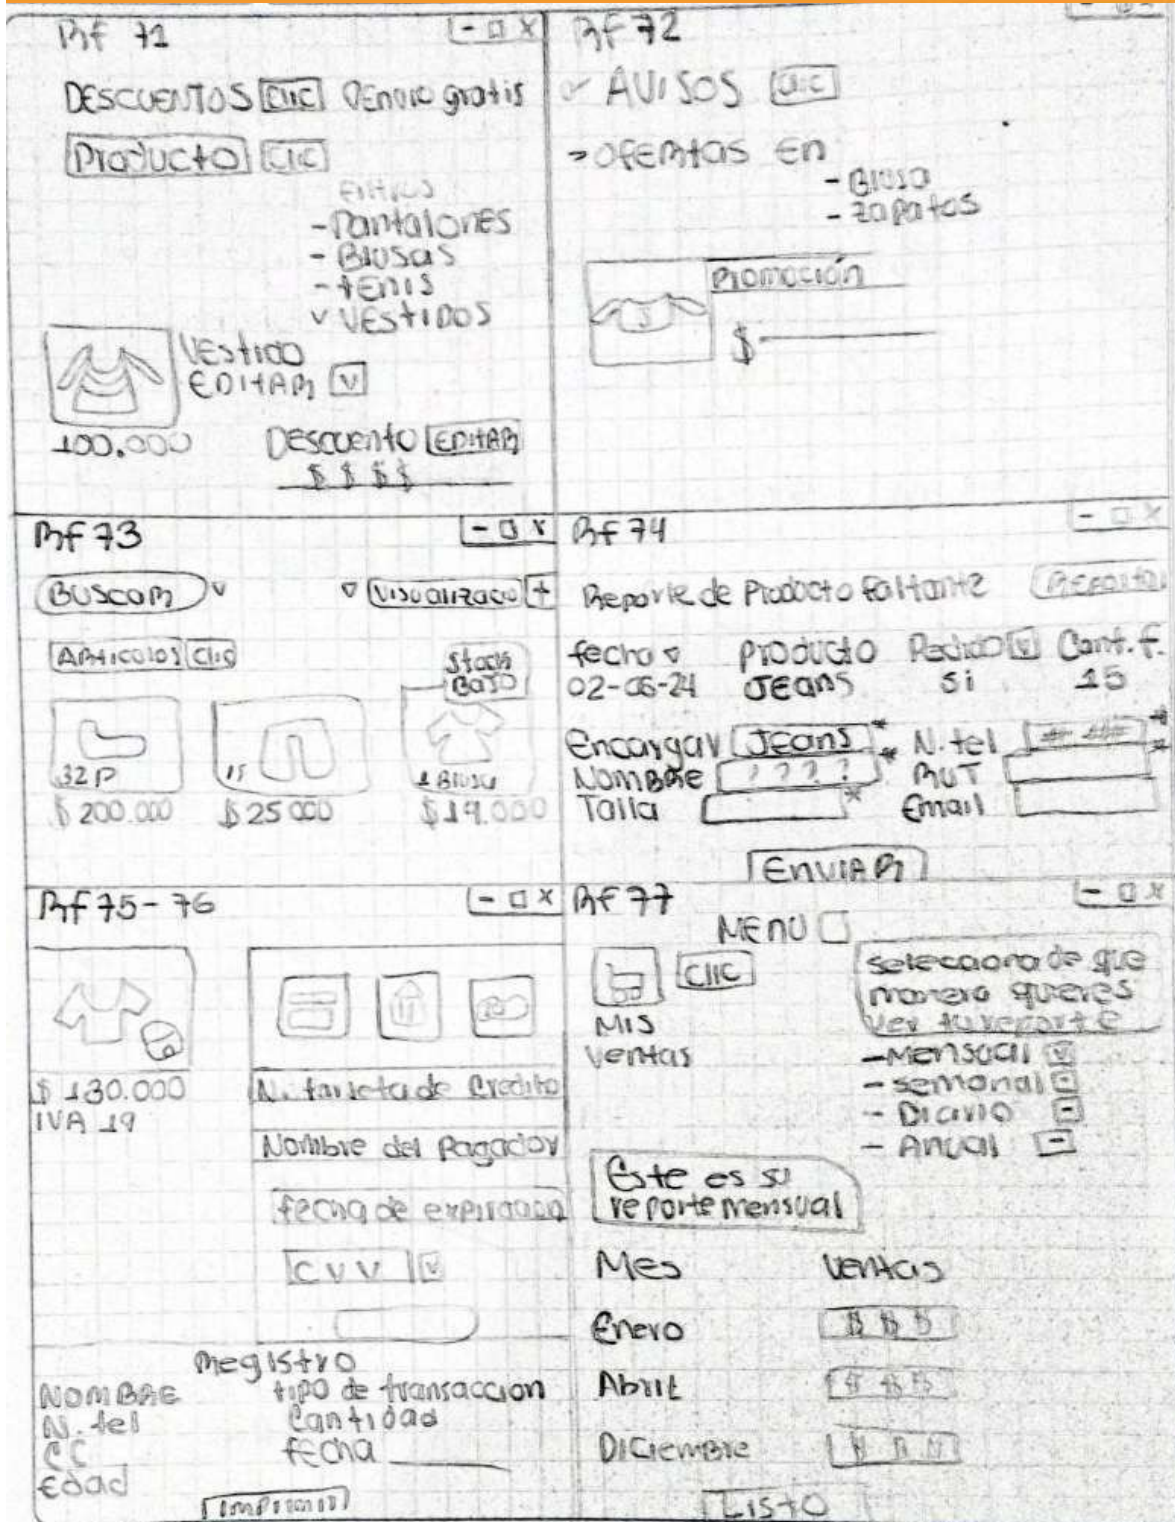 Rf 71
DESCUENTOS CLIC Envio gratis
Producto CLIC
Filtros
- Pantalones
- Blusas
- tenis
v VESTIDOS
VEStido
EDITAR v
100.000
DEScuento EDITAR
$ $ $ $
Rf 72
AVISOS CLIC
> OFERtas En
- Blusa
- zapatos
Promoción
$
Rf 73
BUSCAR v
Visualizacio +
ARticulos Clic
Stock
BaJO
32 P
15
1 Blusa
$ 200.000
$ 25 000
$ 19.000
Rf 74
Reporte de Producto Faltante
fecha Producto Pedido v Cant. f.
02-06-24 JEans si 15
Encargar JEans * N. tel *
NomBRE ? ? ? ? * RUT *
Talla * Email
EnviAR
Rf 75 - 76
$ 130.000
IVA 19
N. tarjeta de Credito
Nombre del Pagador
fecha de expiracion
CVV v
Registro
NOMBRE
N. tel
CC
Edad
tipo de transaccion
Cantidad
fecha
Imprimir
Rf 77
MENU
CLIC
Mis
Ventas
selecciona de que
manera quieres
Ver tu reporte
- Mensual v
- semanal -
- Diario -
- Anual -
Este es su
reporte mensual
Mes Ventas
Enero $ $ $
Abril $ $ $
DiciemBRE
LISTO